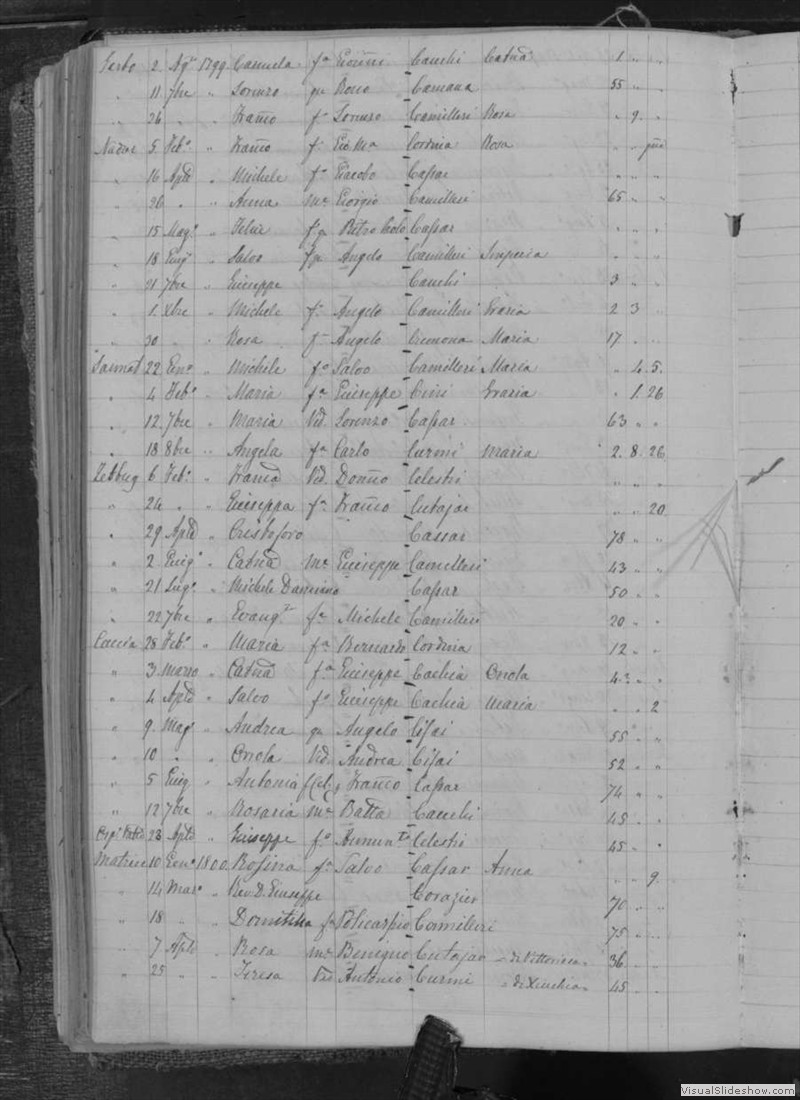 Xerbo 2 Ag.to 1799 Camuela f.a Gio:ni Cauchi Catna 1 " "
" 11 7bre " Lorenzo qu Roco Camana 55 " "
" 26 " " Franco f.o Lorenzo Camilleri Rosa " 9 "
Nadur 5 Feb.o " Franco f.o Gio Ma Cordina Rosa " "
" 16 Aple " Michele f.o Giacobo Cassar " " "
" 26 " " Anna m.e Giorgio Camilleri 65 " "
" 15 Mag.o " Felice Cassar " " "
" 18 Giug.o " Salvo Angelo Camilleri Imperia " " "
" 21 7bre " Giuseppe Cauchi 3 " "
" 1 Xbre " Michele f.o Angelo Camilleri Grazia 2 3 "
" 30 " " Rosa f Angelo Cremona Maria 17 " "
Sannat 22 Gen.o " Michele f.o Salvo Camilleri Maria " 4 5
" 4 Feb.o " Maria f.a Giuseppe Cini Grazia " 1 26
" 12 7bre " Maria Vid. Lorenzo Cassar 63 " "
" 18 8bre " Angela f.a Carlo Curmi Maria 2 8 26
Zebbug 6 Feb.o " Franca Vid. Celestri " " "
" 24 " " Giuseppa f.a Franco Cutajar " " 20
" 29 Aple " Cristoforo Cassar 78 " "
" 2 Giug.o " Catna m.e Giuseppe Camilleri 43 " "
" 21 Lug.o " Michele Dannino Cassar 50 " "
" 22 7bre " Evang.ta f.a Michele Camilleri 20 " "
Caccia 28 Feb.o " Maria f.a Bernardo Cordina 12 " "
" 3 Marzo " Catna f.a Giuseppe Cachia Orsola 4 3 "
" 4 Aple " Salvo f.o Giuseppe Cachia Maria " " 2
" 9 Mag.o " Andrea qu Angelo 55 " "
" 10 " " Orsola Vid. Andrea 52 " "
" 5 Giug " Antonia Franco Cassar 74 " "
" 12 7bre " Rosaria m.e Batta Cauchi 45 " "
23 Aple " Giuseppe f.o Celestri 45 " "
Matrice 10 Gen.o 1800 Rosina f.a Salvo Cassar Anna " " 9
" 14 Mar.o " Rev. D. Giuseppe 70 " "
" 18 " " Domitilla Policarpio Camilleri 75 " "
" 7 Aple " Rosa m.e Benigno Cutajar - di Vittoriosa - 36 " "
" 25 " " Teresa Vid Antonio Curmi 45 " "
VisualSlideshow.com